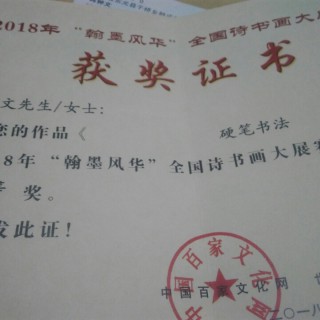 2018年“翰墨风华”全国诗书画大
获奖证书
文先生/女士：
您的作品《 硬笔书法
8年“翰墨风华”全国诗书画大展
奖。
发此证！
中国百家文化网
中国百家文化网
二〇一八